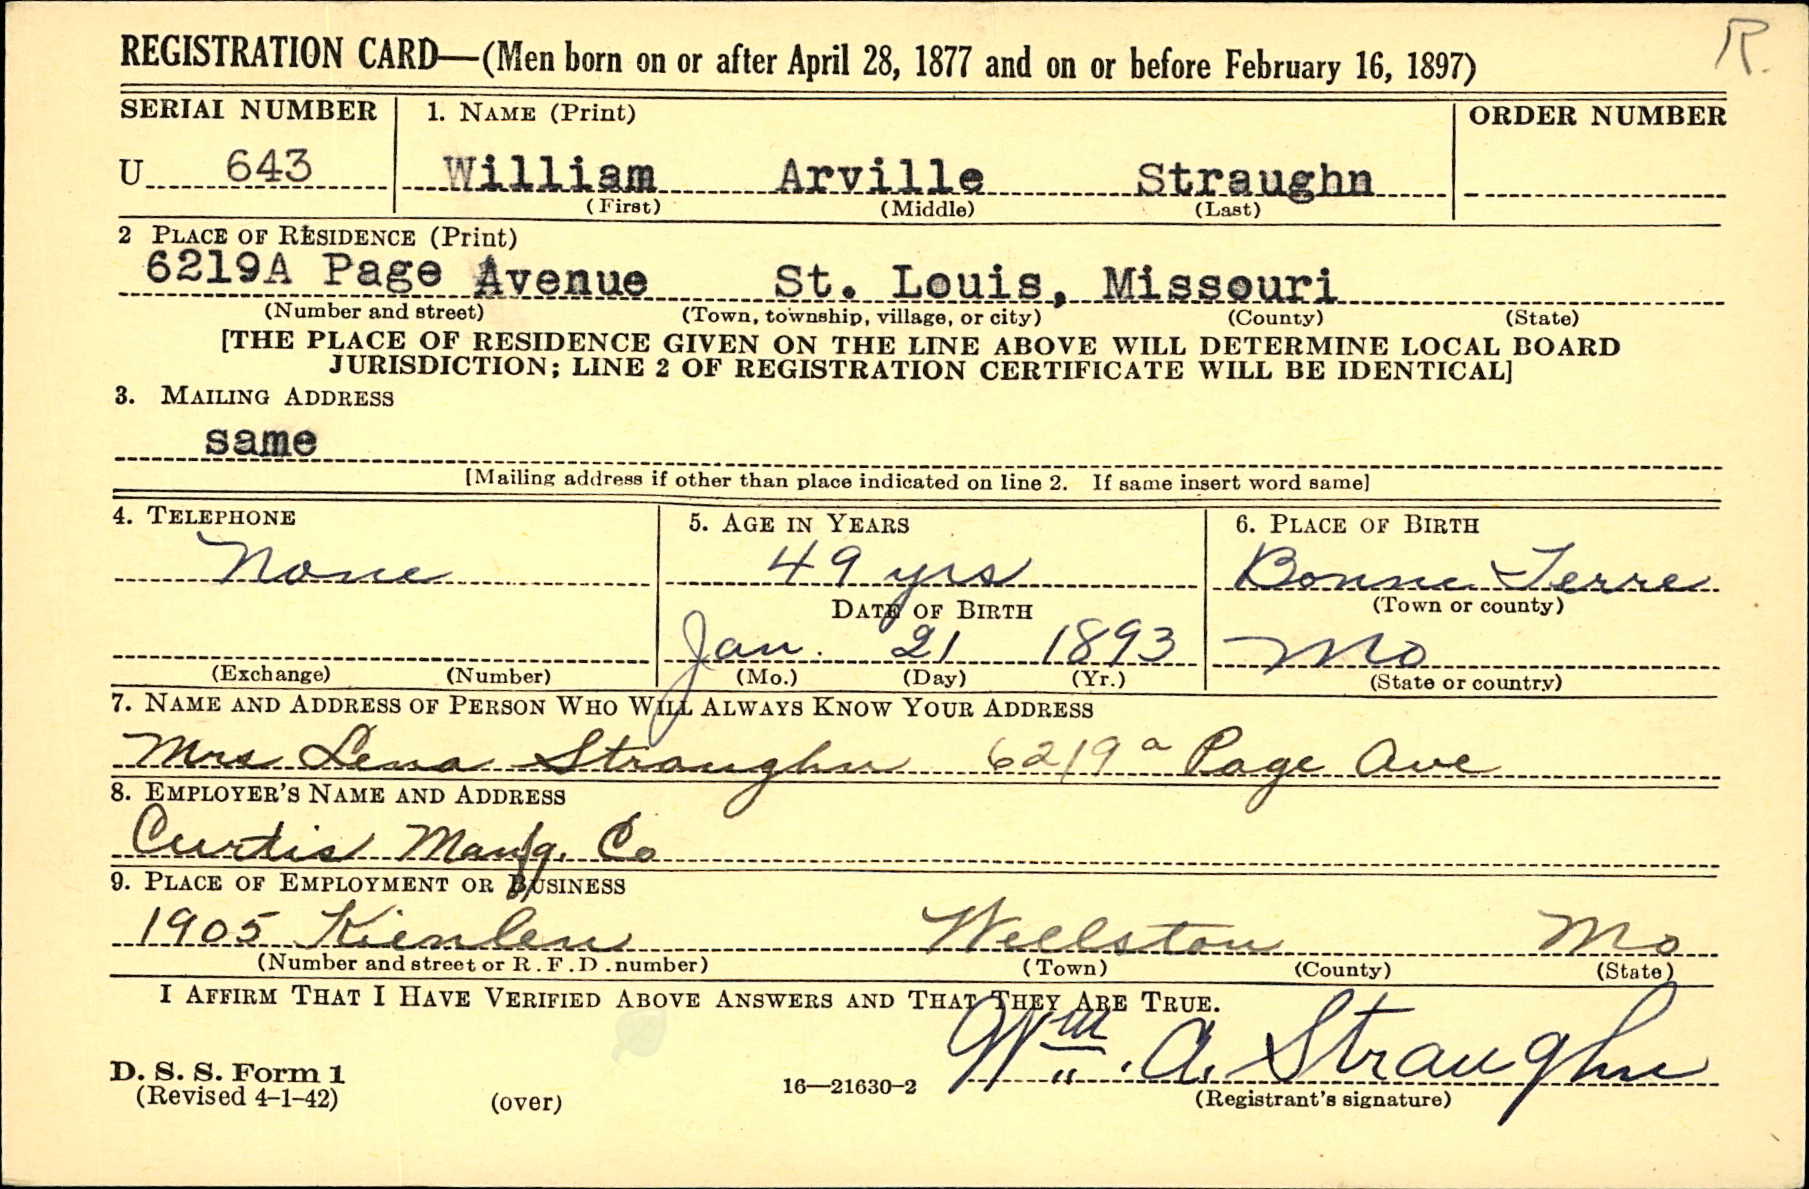 R.
REGISTRATION CARD—(Men born on or after April 28, 1877 and on or before February 16, 1897)
SERIAL NUMBER 1. NAME (Print) ORDER NUMBER
U 643 William Arville Straughn
(First) (Middle) (Last)
2 PLACE OF RESIDENCE (Print)
6219A Page Avenue St. Louis, Missouri
(Number and street) (Town, township, village, or city) (County) (State)
[THE PLACE OF RESIDENCE GIVEN ON THE LINE ABOVE WILL DETERMINE LOCAL BOARD
JURISDICTION; LINE 2 OF REGISTRATION CERTIFICATE WILL BE IDENTICAL]
3. MAILING ADDRESS
same
[Mailing address if other than place indicated on line 2. If same insert word same]
4. TELEPHONE 5. AGE IN YEARS 6. PLACE OF BIRTH
None 49 yrs Bonne Terre
DATE OF BIRTH (Town or county)
Jan. 21 1893 Mo
(Exchange) (Number) (Mo.) (Day) (Yr.) (State or country)
7. NAME AND ADDRESS OF PERSON WHO WILL ALWAYS KNOW YOUR ADDRESS
Mrs Lena Straughn 6219a Page Ave
8. EMPLOYER'S NAME AND ADDRESS
Curtis Manfg. Co
9. PLACE OF EMPLOYMENT OR BUSINESS
1905 Kienlen Wellston Mo
(Number and street or R. F. D. number) (Town) (County) (State)
I AFFIRM THAT I HAVE VERIFIED ABOVE ANSWERS AND THAT THEY ARE TRUE.
Wm. A. Straughn
D. S. S. Form 1
(Revised 4-1-42) (over) 16—21630-2 (Registrant's signature)